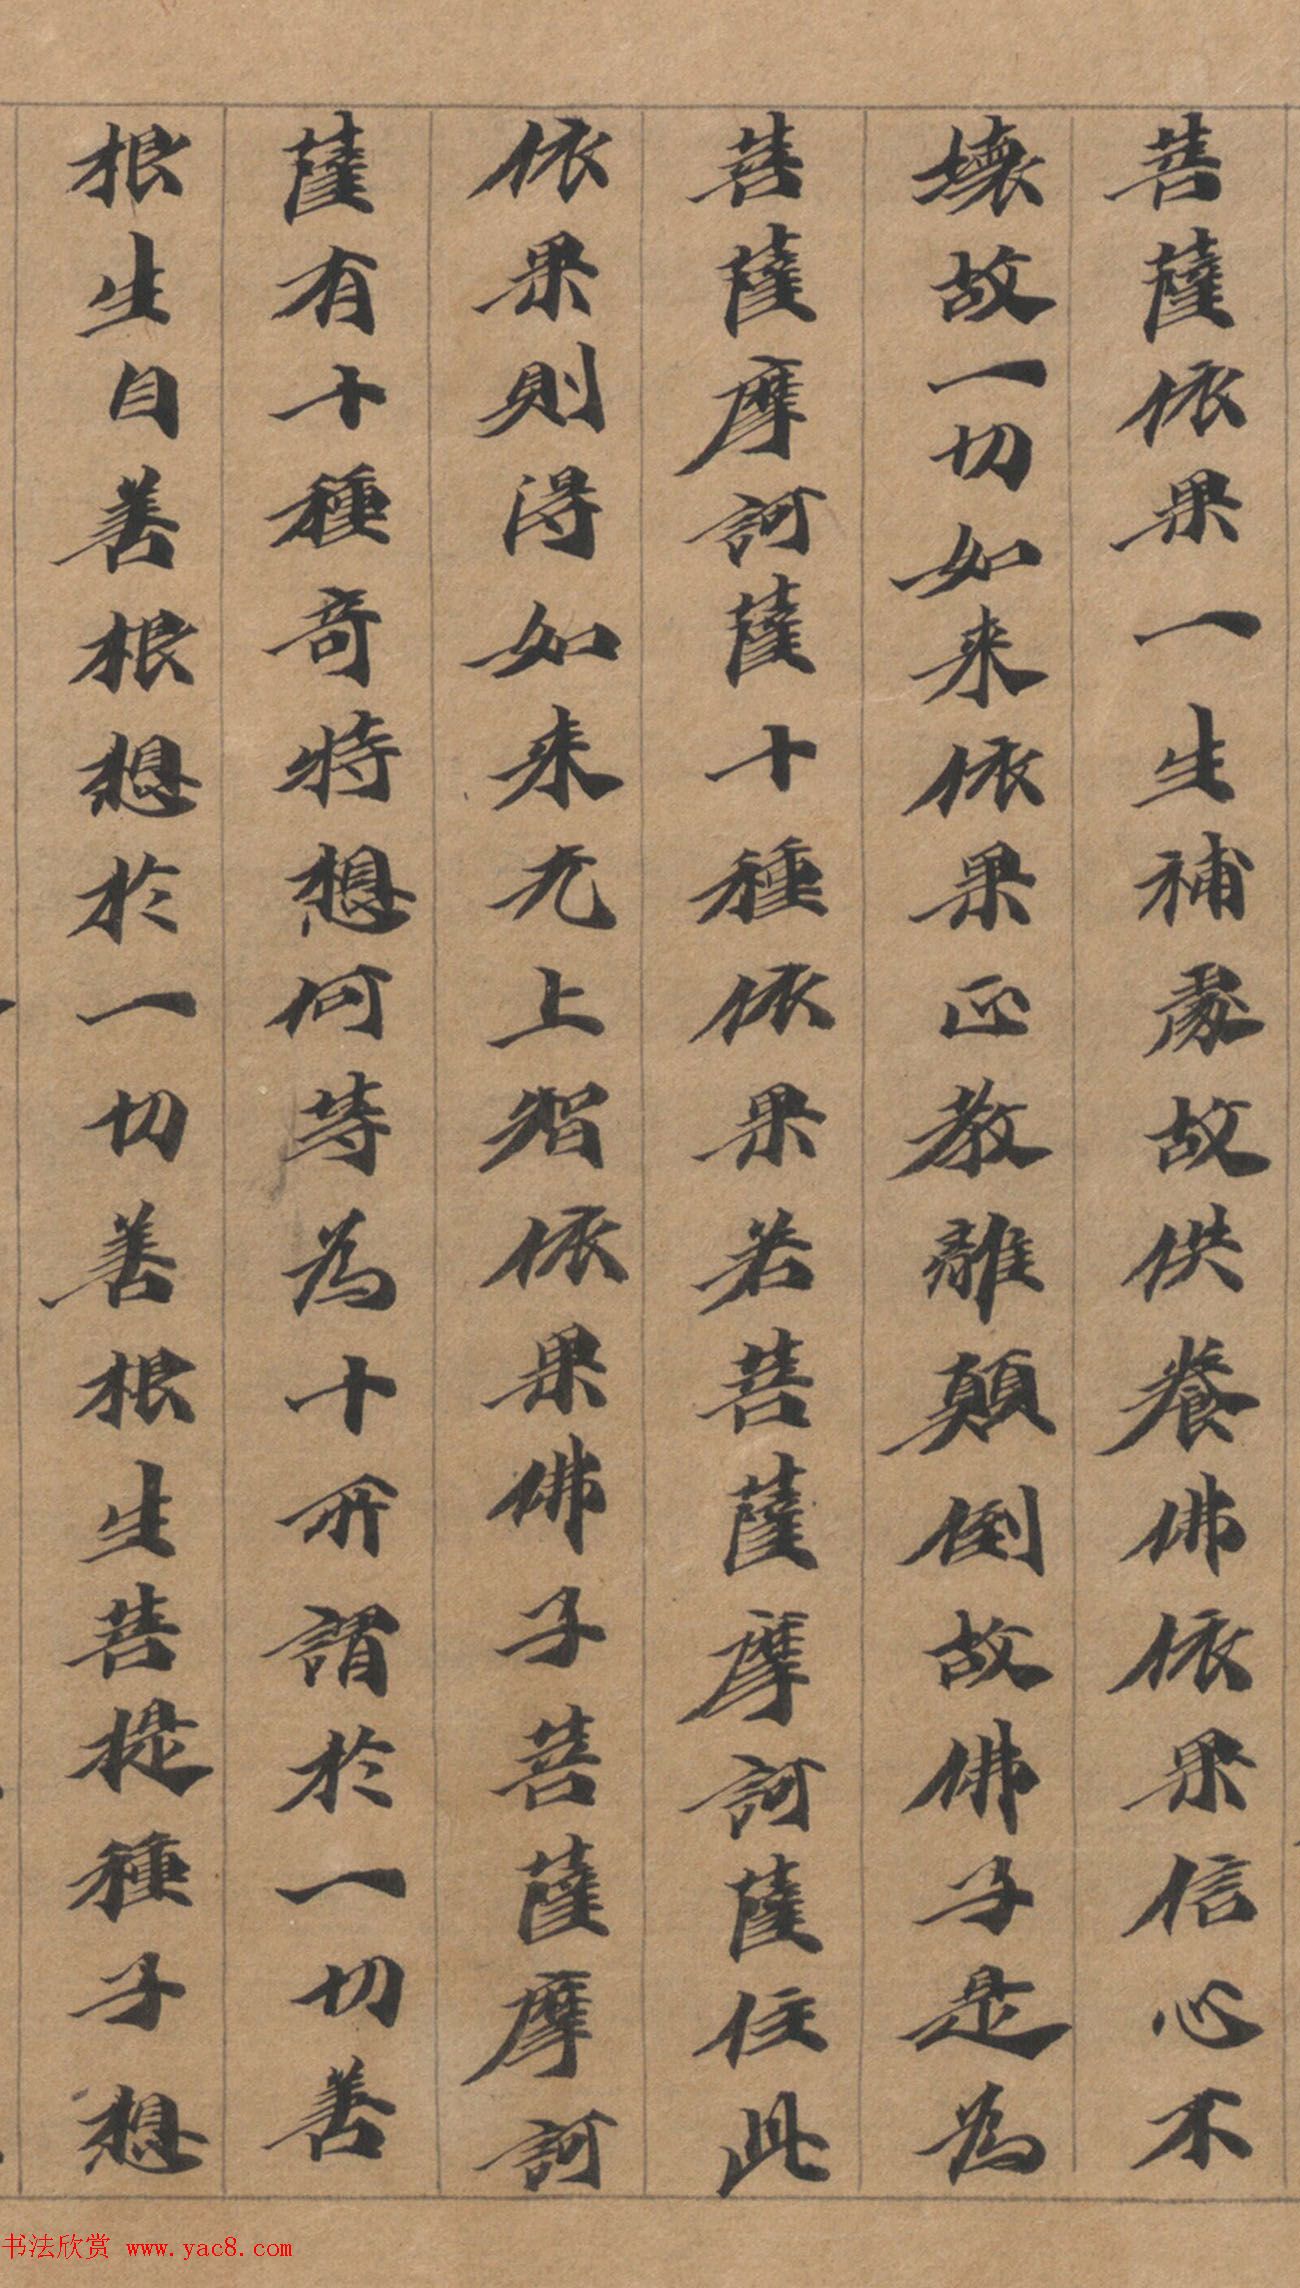 菩薩依果一生補處故供養佛依果信心不
壞故一切如来依果正教離顛倒故佛子是為
菩薩摩訶薩十種依果若菩薩摩訶薩住此
依果則得如来无上智依果佛子菩薩摩訶
薩有十種奇特想何等為十所謂於一切善
根生自善根想於一切善根生菩提種子想
书法欣赏 www.yac8.com